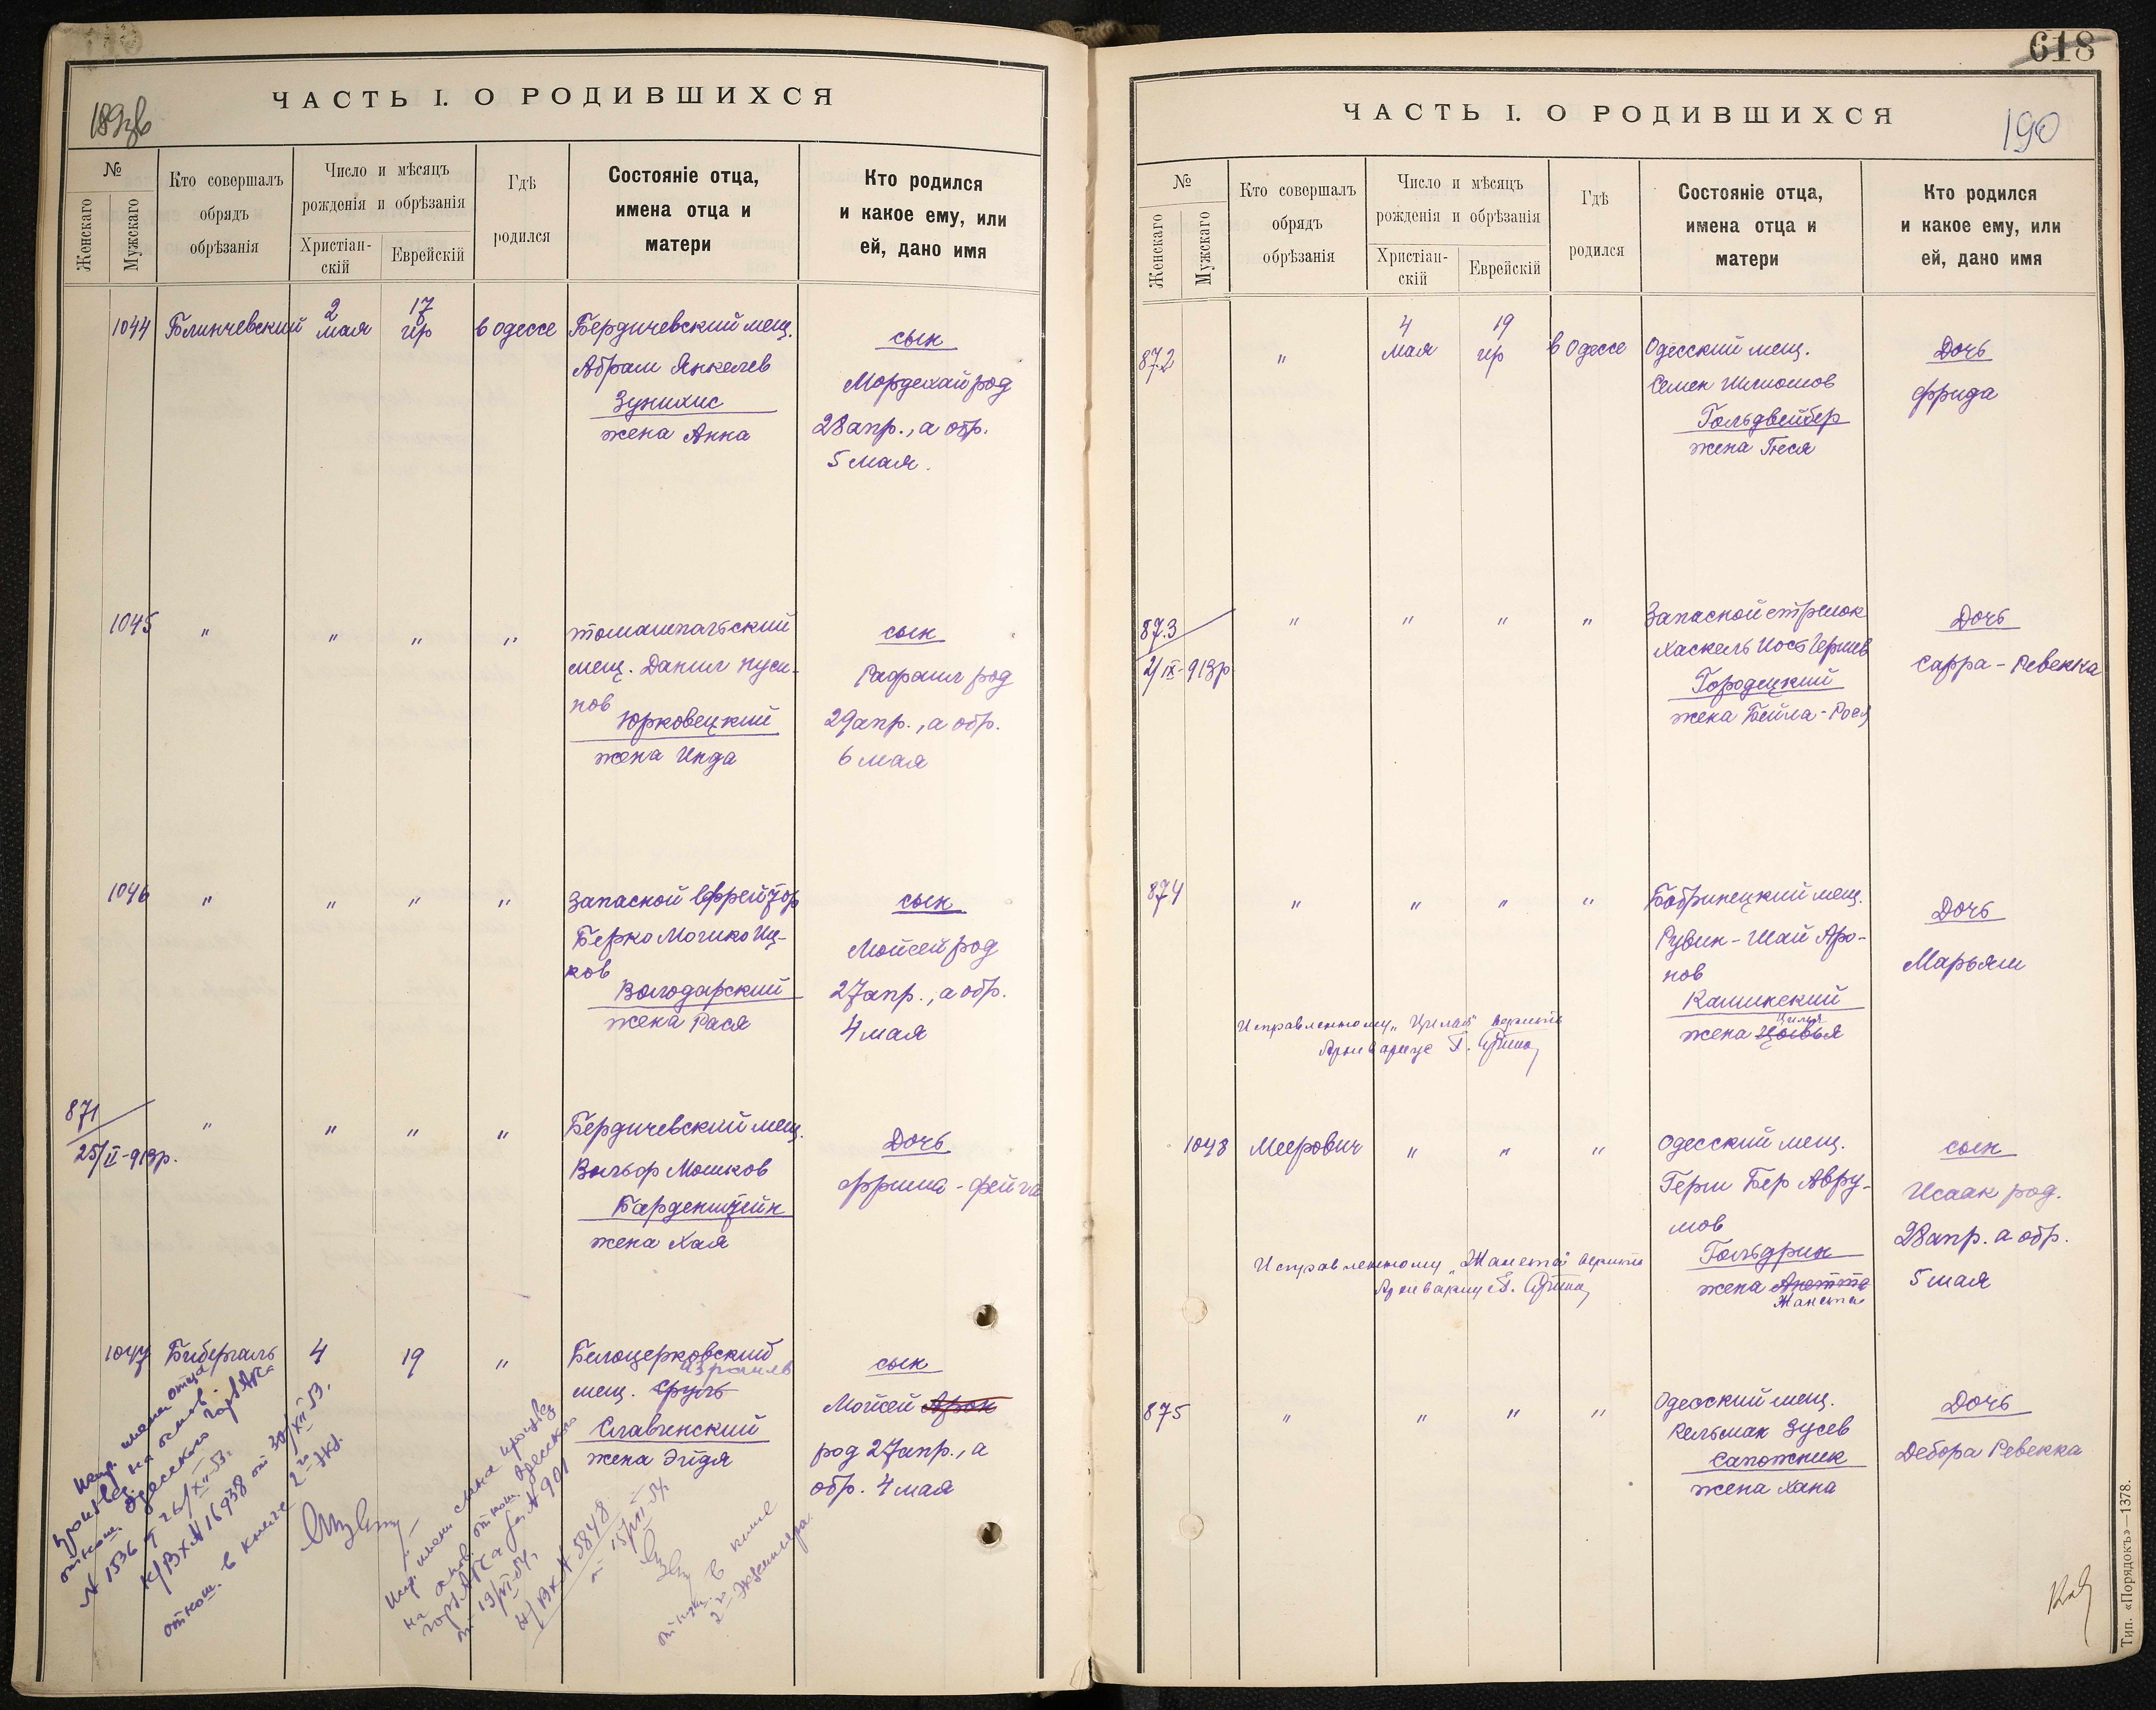 ЧАСТЬ I. О РОДИВШИХСЯ
№
Женскаго
Мужскаго
Кто совершалъ
обрядъ
обрѣзанія
Число и мѣсяцъ
рожденія и обрѣзанія
Христіан-
скій
Еврейскій
Гдѣ
родился
Состояніе отца,
имена отца и
матери
Кто родился
и какое ему, или
ей, дано имя
1044 Блинчевский
2
мая
17
іяр
в одессе
Бердичевский мещ.
Абрам Янкелев
Зунихис
жена Анна
сын
Мордехай род
28 апр., а обр.
5 мая.
1045 " " " "
томашпальский
мещ. Данил Нуси-
нов
Юрковецкий
жена Инда
сын
Рафаил род
29 апр., а обр.
6 мая
1046 " " " "
Запасной ефрейтор
Берко Мошко Иц-
ков
Володарский
жена Рася
сын
Мойсей род
27 апр., а обр.
4 мая
871
25/II-913р.
" " " "
Бердичевский мещ.
Вольф Мошков
Барденштейн
жена Хая
Дочь
Фрима-Фейга
1047 Бибергаль 4 19 "
Белоцерковский
Израиль
мещ. Сруль
Славинский
жена Эйдя
сын
Мойсей Арон
род 27 апр., а
обр. 4 мая
Испр. имени отца
произвед. на основ.
отнош. Одесского горзАГСа
N 1536 от 26/XII-53.
к/Вх N 16938 от 30/XII 53.
отнош. в книге 2й экз.
Испр. имени сына произвед
на основ. отнош. Одесского
горзАГСа за N 901
от 19/VI-54.
к/Вх N 5848
от 15/VII-54.
отнош. в книге
2й экземпляра.
618
ЧАСТЬ I. О РОДИВШИХСЯ
190
№
Женскаго
Мужскаго
Кто совершалъ
обрядъ
обрѣзанія
Число и мѣсяцъ
рожденія и обрѣзанія
Христіан-
скій
Еврейскій
Гдѣ
родился
Состояніе отца,
имена отца и
матери
Кто родился
и какое ему, или
ей, дано имя
872 "
4
мая
19
іяр
в Одессе
Одесский мещ.
Семен Шлиомов
Гольдвейбер
жена Геся
Дочь
Фрида
873
2/IX-913р
" " " "
Запасной стрелок
Хаскель Иос Гершев
Городецкий
жена Бейла-Рося
Дочь
Сарра-Ревекка
874 " " " "
Бобринецкий мещ.
Рувин-Шай Аро-
нов
Калинский
Цилья
жена Цивья
Дочь
Марьям
Исправленному "Цилья" верить
1048 Меерович " " "
Одесский мещ.
Герш Бер Авру-
мов
Гольдрин
жена Анетта
Жанета
сын
Исаак род.
28 апр. а обр.
5 мая
Исправленному "Жанета" верить
875 " " " "
Одесский мещ.
Кельман Зусев
Сапожник
жена Хана
Дочь
Дебора Ревекка
Тип. «Порядокъ»—1378.